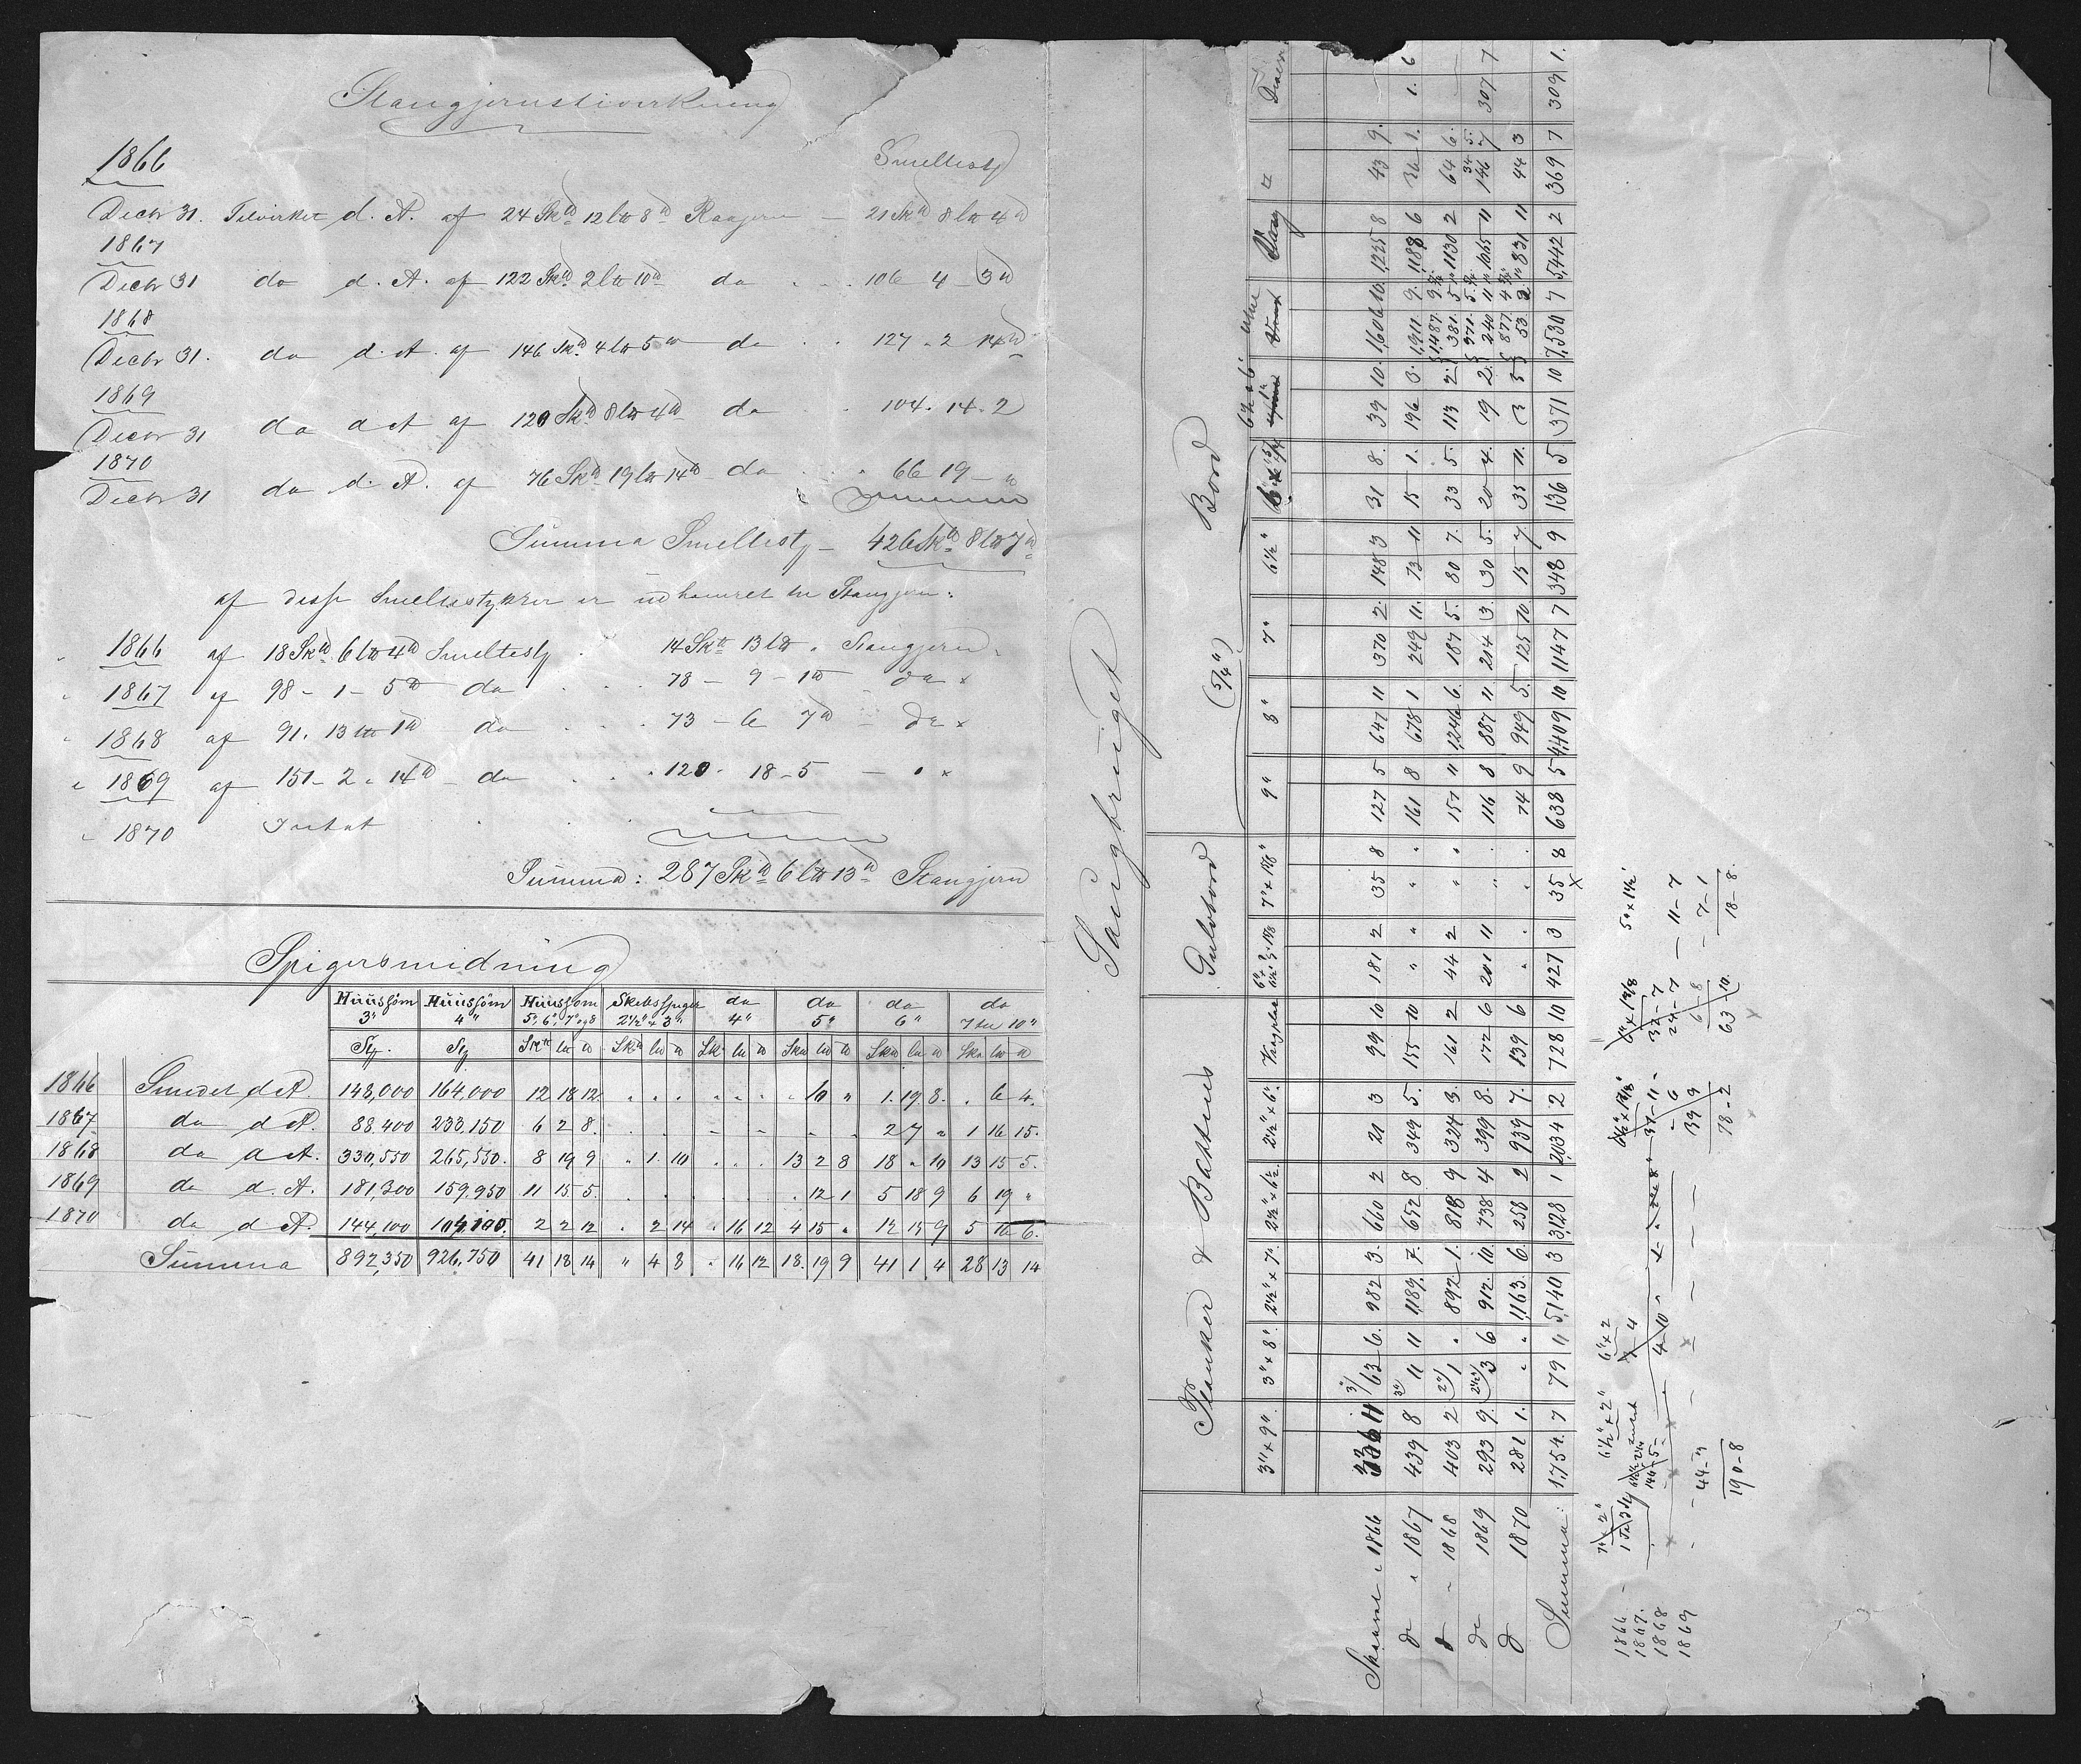 Stangjernstivirkning
1866 Smeltesty
Decbr 31. Tilvirket d. A. af 24 Sk℔ 12 l℔ 8℔ Raajern — 21 Sk℔ 8 l℔ 4℔
1867
Decbr 31 do d. A. af 122 Sk℔ 2 l℔ 10℔ do . . . 106 4 3℔
1868
Decbr 31. do d. A. af 146 Sk℔ 4 l℔ 5℔ do . . 127 " 2 14℔
1869
Decbr 31 do d A af 120 Sk℔ 8 l℔ 4℔ do . . 104. 14. 2
1870
Decbr 31 do d. A. af 76 Sk℔ 19 l℔ 14℔ do . . 66 19 – "
Summa Smeltesty – 426 Sk℔ 8 l℔ 7℔
af disse Smeltestykker er udhamret til Stangjern:
" 1866 af 18 Sk℔ 6 l℔ 4℔ Smeltesty . 14 Sk℔ 13 l℔ " Stangjern.
" 1867 af 98 – 1 – 5℔ do . . . 78 – 9 – 1℔ do x
" 1868 af 91. 13 l℔ 1℔ do . . . 73 – 6 7℔ – do x
" 1869 af 151 – 2 " 14℔ – do . . . 120 . 18 – 5 — " x
" 1870 Intet . .
Summa: 287 Sk℔ 6 l℔ 13℔ Stangjern
Spigersmidning
Huussöm 3" Huussöm 4" Huussöm 5", 6", 7" og 8 Skibsspiger 2½" & 3" do 4" do 5" do 6" do 7 til 10"
Sty. Sty Sk℔ l℔ ℔ Sk℔ l℔ ℔ Sk. l℔ ℔ Sk℔ l℔ ℔ Sk℔ l℔ ℔ Sk℔ l℔ ℔
1866 Smedet d A. 148,000 164,000 12 18 12 . . . . . . . 10 " 1. 19 8. . 6 4.
1867 do d A. 88.400 233,150 6 2 8. . . . - - - " . 2 7 " 1 16 15.
1868 do d A. 330,550 265,550. 8 19 9 " 1. 10 . . . 13 2 8 18 " 10 13 15 5.
1869 do d. A. 181,300 159.950 11 15 5. . . . . . . . 12 1 5 18 9 6 19 "
1870 do d A. 144,100 104,100. 2 2 12 " 2 14 " 16 12 4 15 " 12 15 9 5 16 6.
Summa 892,350 926,750 41 18 14 " 4 8 " 16 12 18. 19 9 41 1 4 28 13 14
Saugbruget
Planker & Battens Gulvbord Bord
(5/4")
3" x 9" 3" x 8" 2½" x 7" 2½" x 6½ 2½" x 6" 7" x 1⅜" 9" 8" 7" 6½" Vrag
Skaaret i 1866 336 11 3"/ 63 6. 982 3. 660 2 21 3 99 10 181 2 35 8 127 5 647 11 370 2. 148 3 31 8. 39 10. 1,606 10. 1,225 8 43 9.
do " 1867 439 8 3"/ 11 11 1189. 7. 652 8 349 5. 155 10 " " 161 8 678 1 249 11. 73 11 15 1. 196 3. 1,911 9. 1188 6 36 1. 1. 6
do " 1868 403 2 2"/ 1 " 892 1. 818 9 324 3. 161 2 44 2 " 157 11 1,246 6. 187 5. 80 7. 33 5. 113 2. 1,487. 9 381. 5 1130 2 64 6.
do 1869 293 9. 2½"/ 3 6 912. 10. 738 4 399 8. 172 6 201 11 " 116 8 887 11 214 3. 30 5. 20 4. 19 2. 971. 5. 240 11 1065 11 34 5. 146 7 307 7
do 1870 281 1. " " 1,163. 6. 258 2 939 7. 139 6 " " 74 9 949 5. 125 10. 15 7. 35 11. 3 5 877. 4 53 2. 831 11 44 3
Summa: 1,754. 7 79 11 5,140 3 3,128 1 2034 2 728 10 427 3 35 8 638 5 4,409 10 1147 7 348 9 136 5 371 10 7,530 7 5,442 2 369 7 309 1.
7" x 2" 6½" x 2" 6" x 2 6½" x 1⅜" 6" x 1⅜ 5" x 1½"
1866 – 37 – 7
1867. 144 – 5 – 37 – 11 – 24 – 7
1868 4 – 10 – 6 — 11 – 7
1869 – 44 – 3 39 9 6 – 8 7 – 1
190 – 8 78 – 2 63 – 10. 18 – 8.